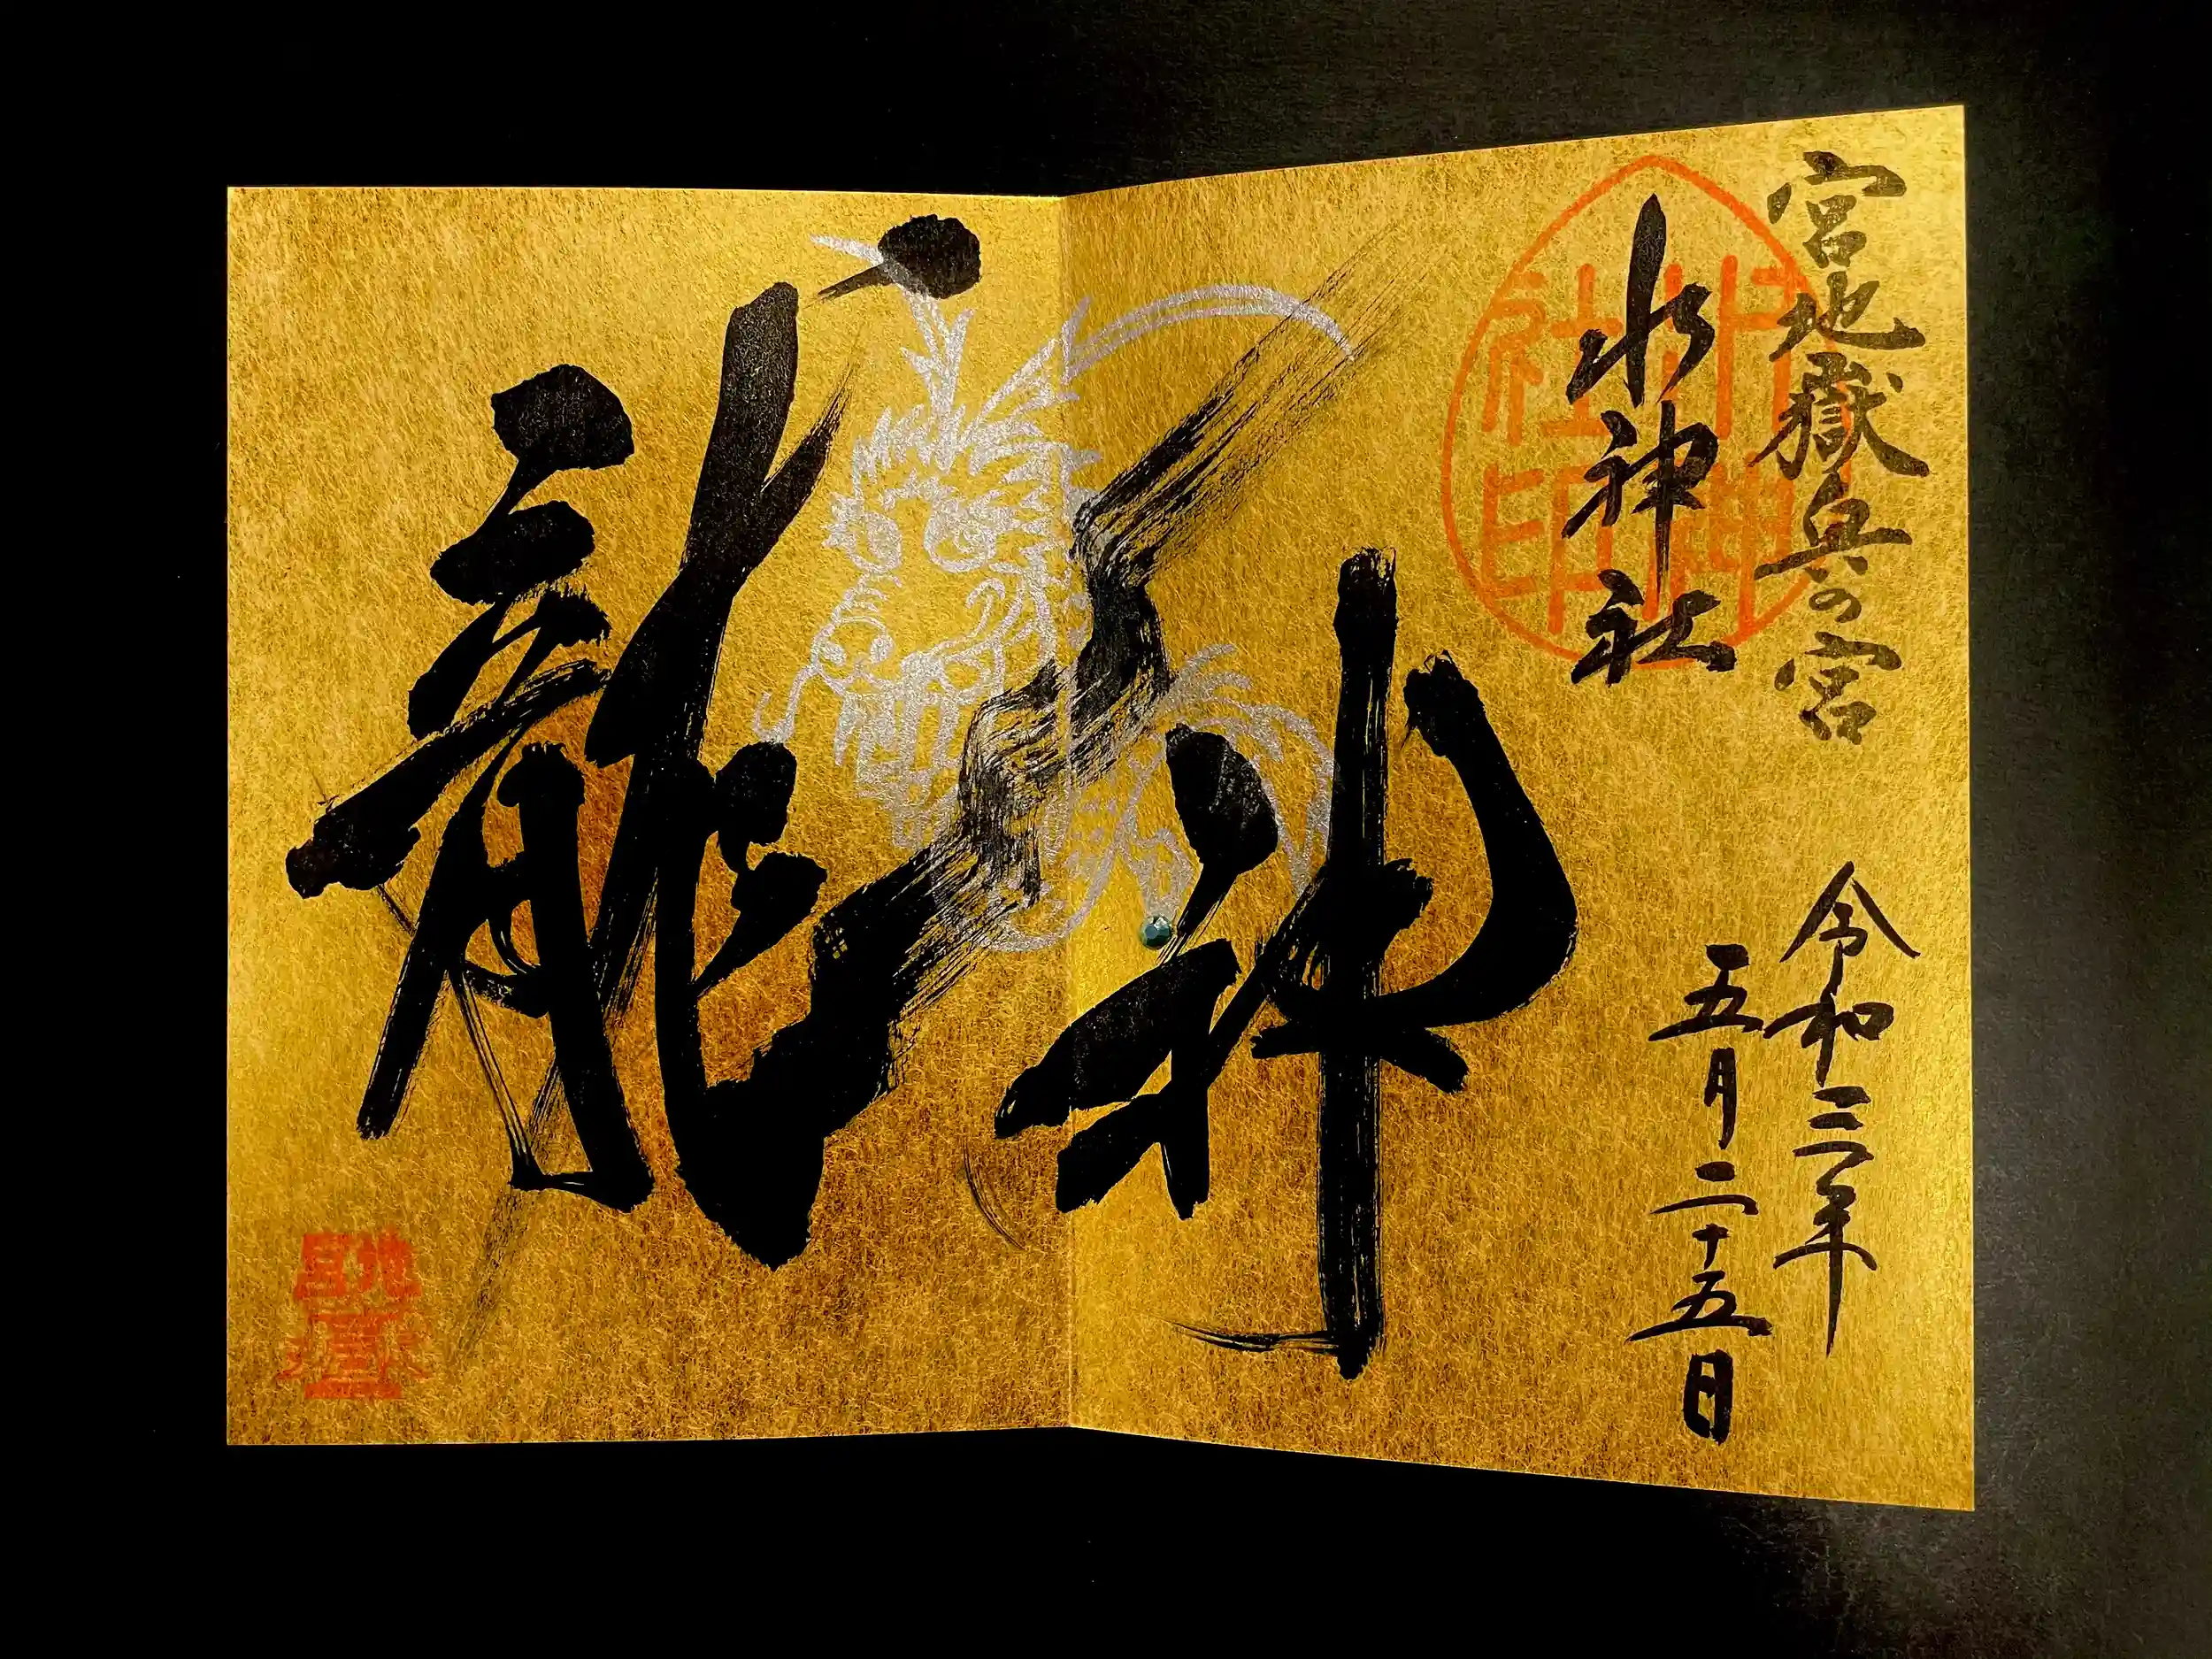 宮地嶽奥の宮
水神社
水神
社印
令和三年
五月二十五日
龍神
宮地嶽